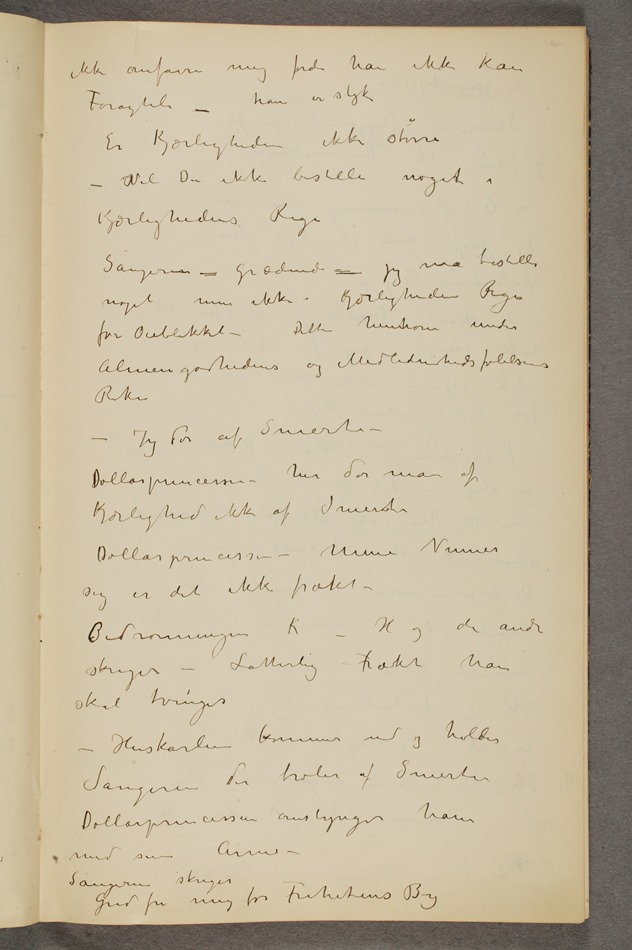 ikke omfavne mig fordi han ikke kan
Foragtelig — han er slyk
Er Kjærligheden ikke større
— Vil De ikke bestille noget i
Kjærlighedens Rige
Sangeren — grædende — jeg må bestille
noget men ikke i Kjærlighedens Rige
for Øieblikket — Dette henhører under
Almengodhedens og Medlidenhedsfølelsens
Rike
— Jeg dør af Smerte —
Dollarprincessen — her dør man af
Kjærlighed ikke af Smerte
Dollarprincessen — Mine Venner
sig er det ikke frækt —
Bidronningen K — H og de andre
skriger — Latterlig — Frækt han
skal tvinges
— Huskarlen kommer ud og holder
Sangeren der brøler af Smerte
Dollarprincessen omslynger ham
med sine Arme —
Sangeren skriger
Gud fri mig for Frihetens By